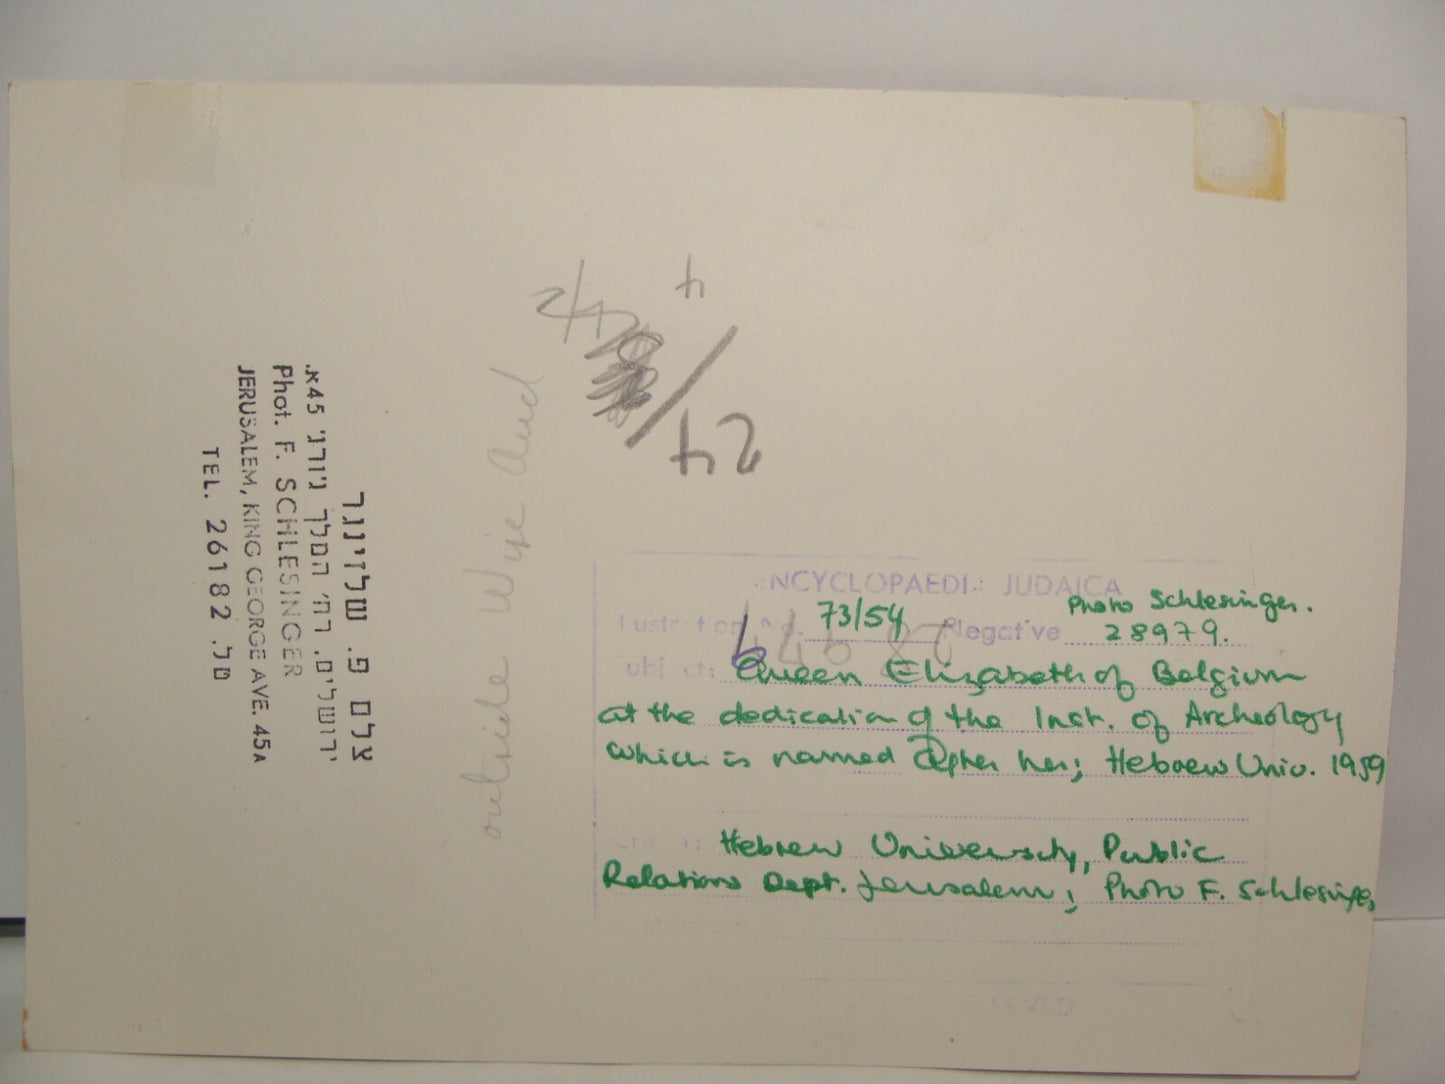 צלם פ. שלזינגר
ירושלים, רח׳ המלך ג׳ורג׳ 45א.
Phot. F. SCHLESINGER
JERUSALEM, KING GEORGE AVE. 45A
TEL. 26182 .טל
outside Wise Aud
4
24
NCYCLOPAEDI JUDAICA
73/54 Negative Photo Schlesinger.
28979.
Queen Elizabeth of Belgium
at the dedication of the Inst. of Archeology
which is named after her; Hebrew Univ. 1959
Hebrew University, Public
Relations Dept. Jerusalem; Photo F. Schlesinger